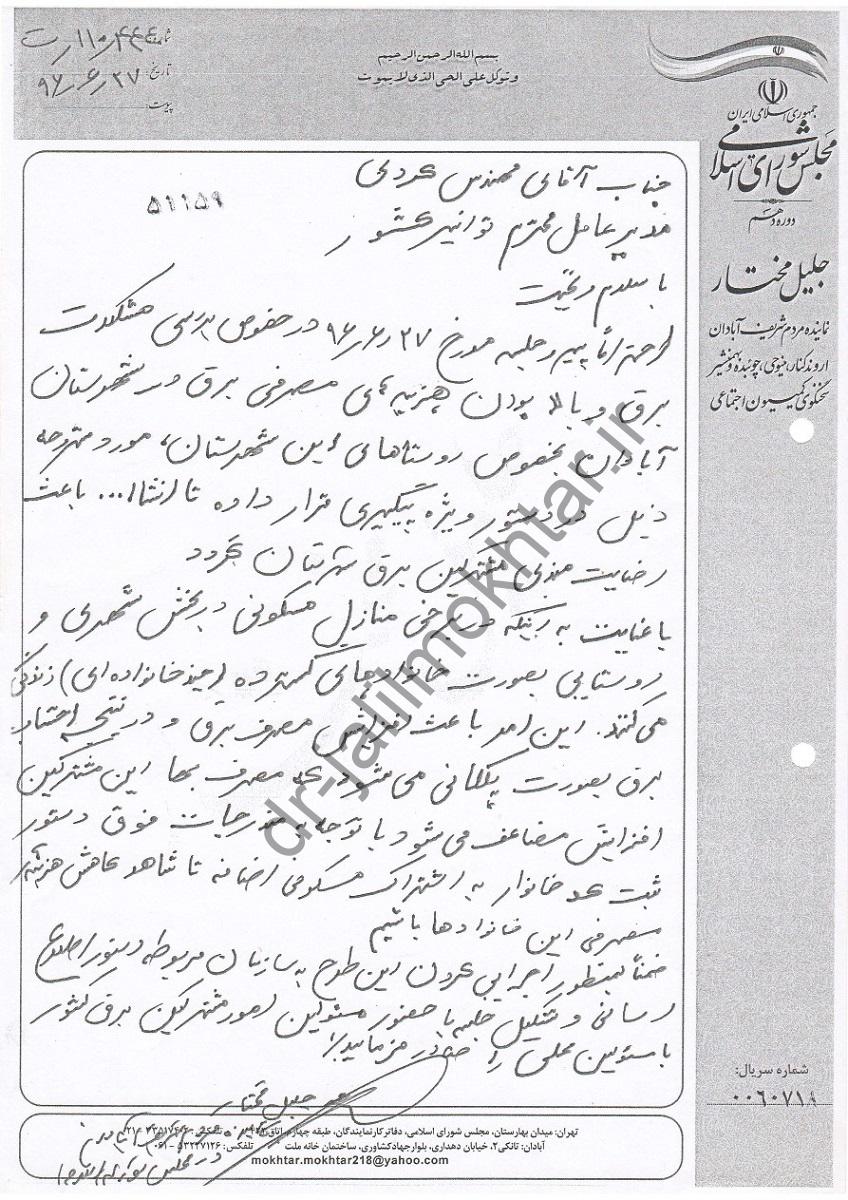 بسم الله الرحمن الرحیم
و توکل علی الحی الذی لا یموت
شماره: ۱۱۰/۴۴۴/ت
تاریخ: ۹۶/۶/۲۷
پیوست:
جمهوری اسلامی ایران
مجلس شورای اسلامی
دوره دهم
جلیل مختار
نماینده مردم شریف آبادان
اروندکنار، منیوحی، چوئبده و بهمنشیر
سخنگوی کمیسیون اجتماعی
۵۱۱۵۹
جناب آقای مهندس کردی
مدیر عامل محترم توانیر کشور
با سلام و تحیت
احتراماً پیرو جلسه مورخ ۹۶٫۶٫۲۷ در خصوص بررسی مشکلات
برق و بالا بودن هزینه های مصرفی برق در شهرستان
آبادان بخصوص روستاهای این شهرستان، موردمتروحه
ذیل در دستور ویژه پیگیری قرار داده تا انشاا... باعث
رضایت مندی مشترکین برق شهرستان گردد
با عنایت به اینکه در برخی منازل مسکونی در بخش شهری و
روستایی بصورت خانوادهای گسترده (چند خانواده ای) زندگی
می کنند. این امر باعث افزایش مصرف برق و در نتیجه احتساب
برق بصورت پلکانی می شود که مصرف بها این مشترکین
افزایش مضاعف می شود با توجه به مندرجات فوق دستور
ثبت کد خانوار به اشتراک مسکونی اضافه تا شاهد کاهش هزینه
مصرفی این خانوادها باشیم
ضمناً بمنظور اجرایی کردن این طرح به سازمان مربوطه دستور اطلاع
رسانی و تشکیل جلسه با حضور مسئولین امور مشترکین برق کشور
با مسئولین محلی را صادر فرمایید.
جلیل مختار
در مجلس شورای اسلامی
شماره سریال:
۰۰۶۰۷۱۹
تهران: میدان بهارستان، مجلس شورای اسلامی، دفاتر کارنمایندگان، طبقه چهارم
آبادان: تانکی۲، خیابان دهداری، بلوار جهاد کشاورزی، ساختمان خانه ملت تلفکس: ۵۳۲۲۷۱۲۶ - ۰۶۱
mokhtar.mokhtar218@yahoo.com
dr-jalilmokhtar.ir